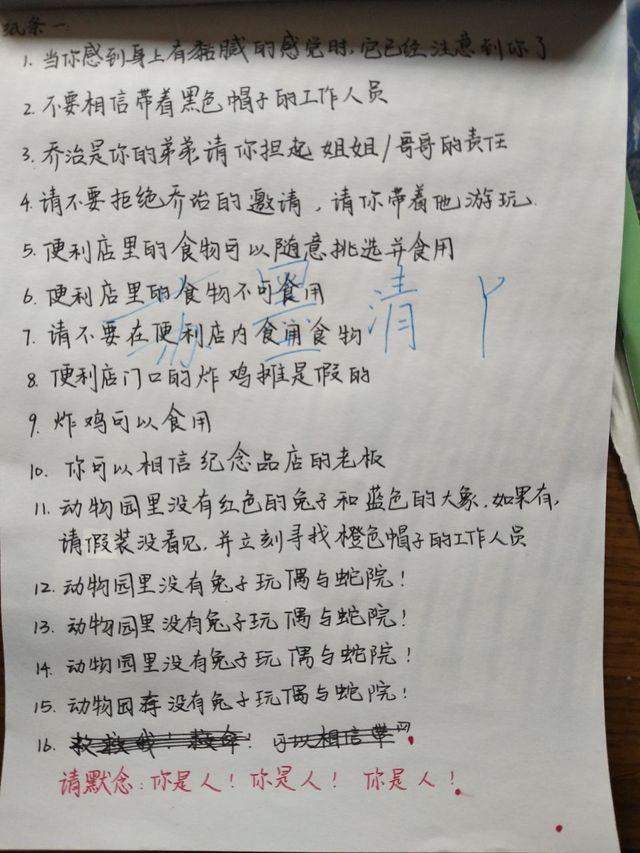 纸条一
1. 当你感到身上有黏腻的感觉时,它已经注意到你了
2. 不要相信带着黑色帽子的工作人员
3. 乔治是你的弟弟请你担起姐姐/哥哥的责任
4. 请不要拒绝乔治的邀请,请你带着他游玩.
5. 便利店里的食物可以随意挑选并食用
6. 便利店里的食物不可食用
7. 请不要在便利店内食用食物
8. 便利店门口的炸鸡摊是假的
9. 炸鸡可以食用
10. 你可以相信纪念品店的老板
11. 动物园里没有红色的兔子和蓝色的大象,如果有,
请假装没看见,并立刻寻找橙色帽子的工作人员
12. 动物园里没有兔子玩偶与蛇院!
13. 动物园里没有兔子玩偶与蛇院!
14. 动物园里没有兔子玩偶与蛇院!
15. 动物园存没有兔子玩偶与蛇院!
16. 救救我!救命!可以相信
请默念:你是人!你是人!你是人!
墨清丫